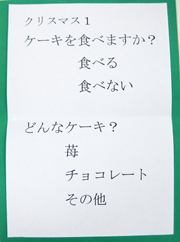 クリスマス１
ケーキを食べますか？
食べる
食べない
どんなケーキ？
苺
チョコレート
その他